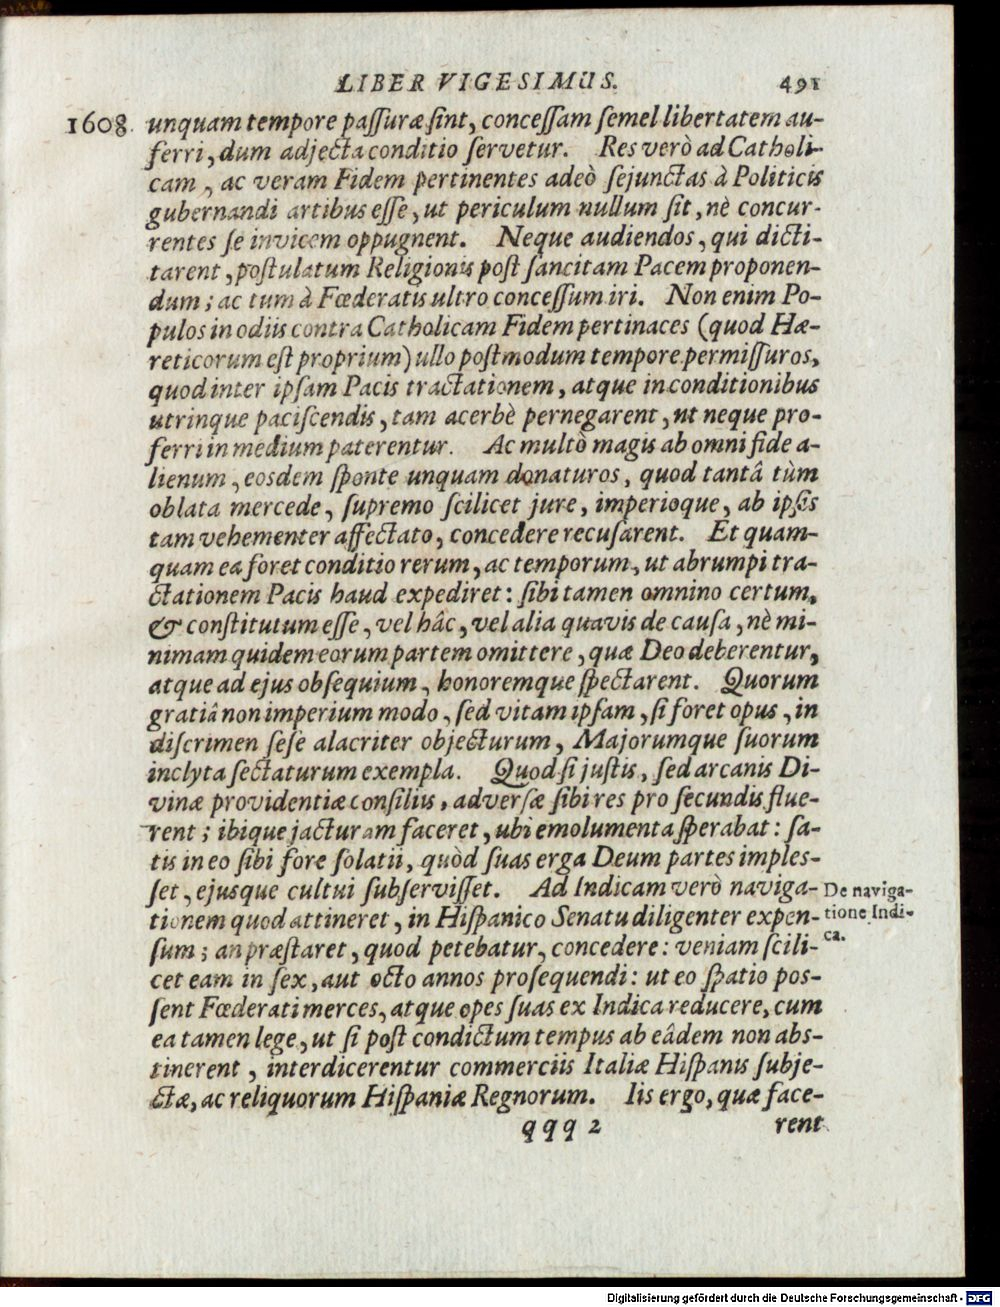 LIBER VIGESIMUS. 491
1608. unquam tempore paſſuræ ſint, conceſſam ſemel libertatem au-
ferri, dum adjecta conditio ſervetur. Res verò ad Catholi-
cam, ac veram Fidem pertinentes adeò ſejunctas à Politicis
gubernandi artibus eſſe, ut periculum nullum ſit, nè concur-
rentes ſe invicem oppugnent. Neque audiendos, qui dicti-
tarent, poſtulatum Religionis poſt ſancitam Pacem proponen-
dum; ac tum à Fœderatis ultro conceſſum iri. Non enim Po-
pulos in odiis contra Catholicam Fidem pertinaces (quod Hæ-
reticorum eſt proprium) ullo poſtmodum tempore permiſſuros,
quod inter ipſam Pacis tractationem, atque in conditionibus
utrinque paciſcendis, tam acerbè pernegarent, ut neque pro-
ferri in medium paterentur. Ac multò magis ab omni fide a-
lienum, eosdem ſponte unquam donaturos, quod tantâ tùm
oblata mercede, ſupremo ſcilicet jure, imperioque, ab ipſis
tam vehementer affectato, concedere recuſarent. Et quam-
quam ea foret conditio rerum, ac temporum, ut abrumpi tra-
ctationem Pacis haud expediret: ſibi tamen omnino certum,
& conſtitutum eſſe, vel hâc, vel alia quavis de cauſa, nè mi-
nimam quidem eorum partem omittere, quæ Deo deberentur,
atque ad ejus obſequium, honoremque ſpectarent. Quorum
gratiâ non imperium modo, ſed vitam ipſam, ſi foret opus, in
diſcrimen ſeſe alacriter objecturum, Majorumque ſuorum
inclyta ſectaturum exempla. Quod ſi juſtis, ſed arcanis Di-
vinæ providentiæ conſiliis, adverſæ ſibi res pro ſecundis flue-
rent; ibique jacturam faceret, ubi emolumenta ſperabat: ſa-
tis in eo ſibi fore ſolatii, quòd ſuas erga Deum partes imples-
ſet, ejusque cultui ſubſerviſſet. Ad Indicam verò naviga-
tionem quod attineret, in Hiſpanico Senatu diligenter expen-
ſum; an præſtaret, quod petebatur, concedere: veniam ſcili-
cet eam in ſex, aut octo annos proſequendi: ut eo ſpatio pos-
ſent Fœderati merces, atque opes ſuas ex Indica reducere, cum
ea tamen lege, ut ſi poſt condictum tempus ab eâdem non abs-
tinerent, interdicerentur commerciis Italiæ Hiſpanis ſubje-
ctæ, ac reliquorum Hiſpaniæ Regnorum. Iis ergo, quæ face-
qqq 2 rent
De naviga-
tione Indi-
ca.
Digitalisierung gefördert durch die Deutsche Forschungsgemeinschaft - DFG